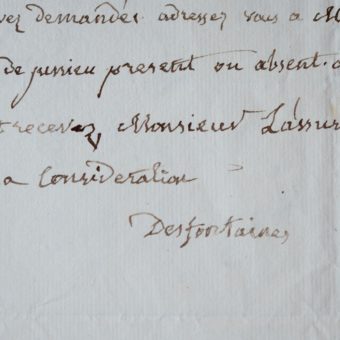 vez demandés adressez vous a M
de jussieu present ou absent. a
t recevez Monsieur L'assur
a Consideration
Desfontaines